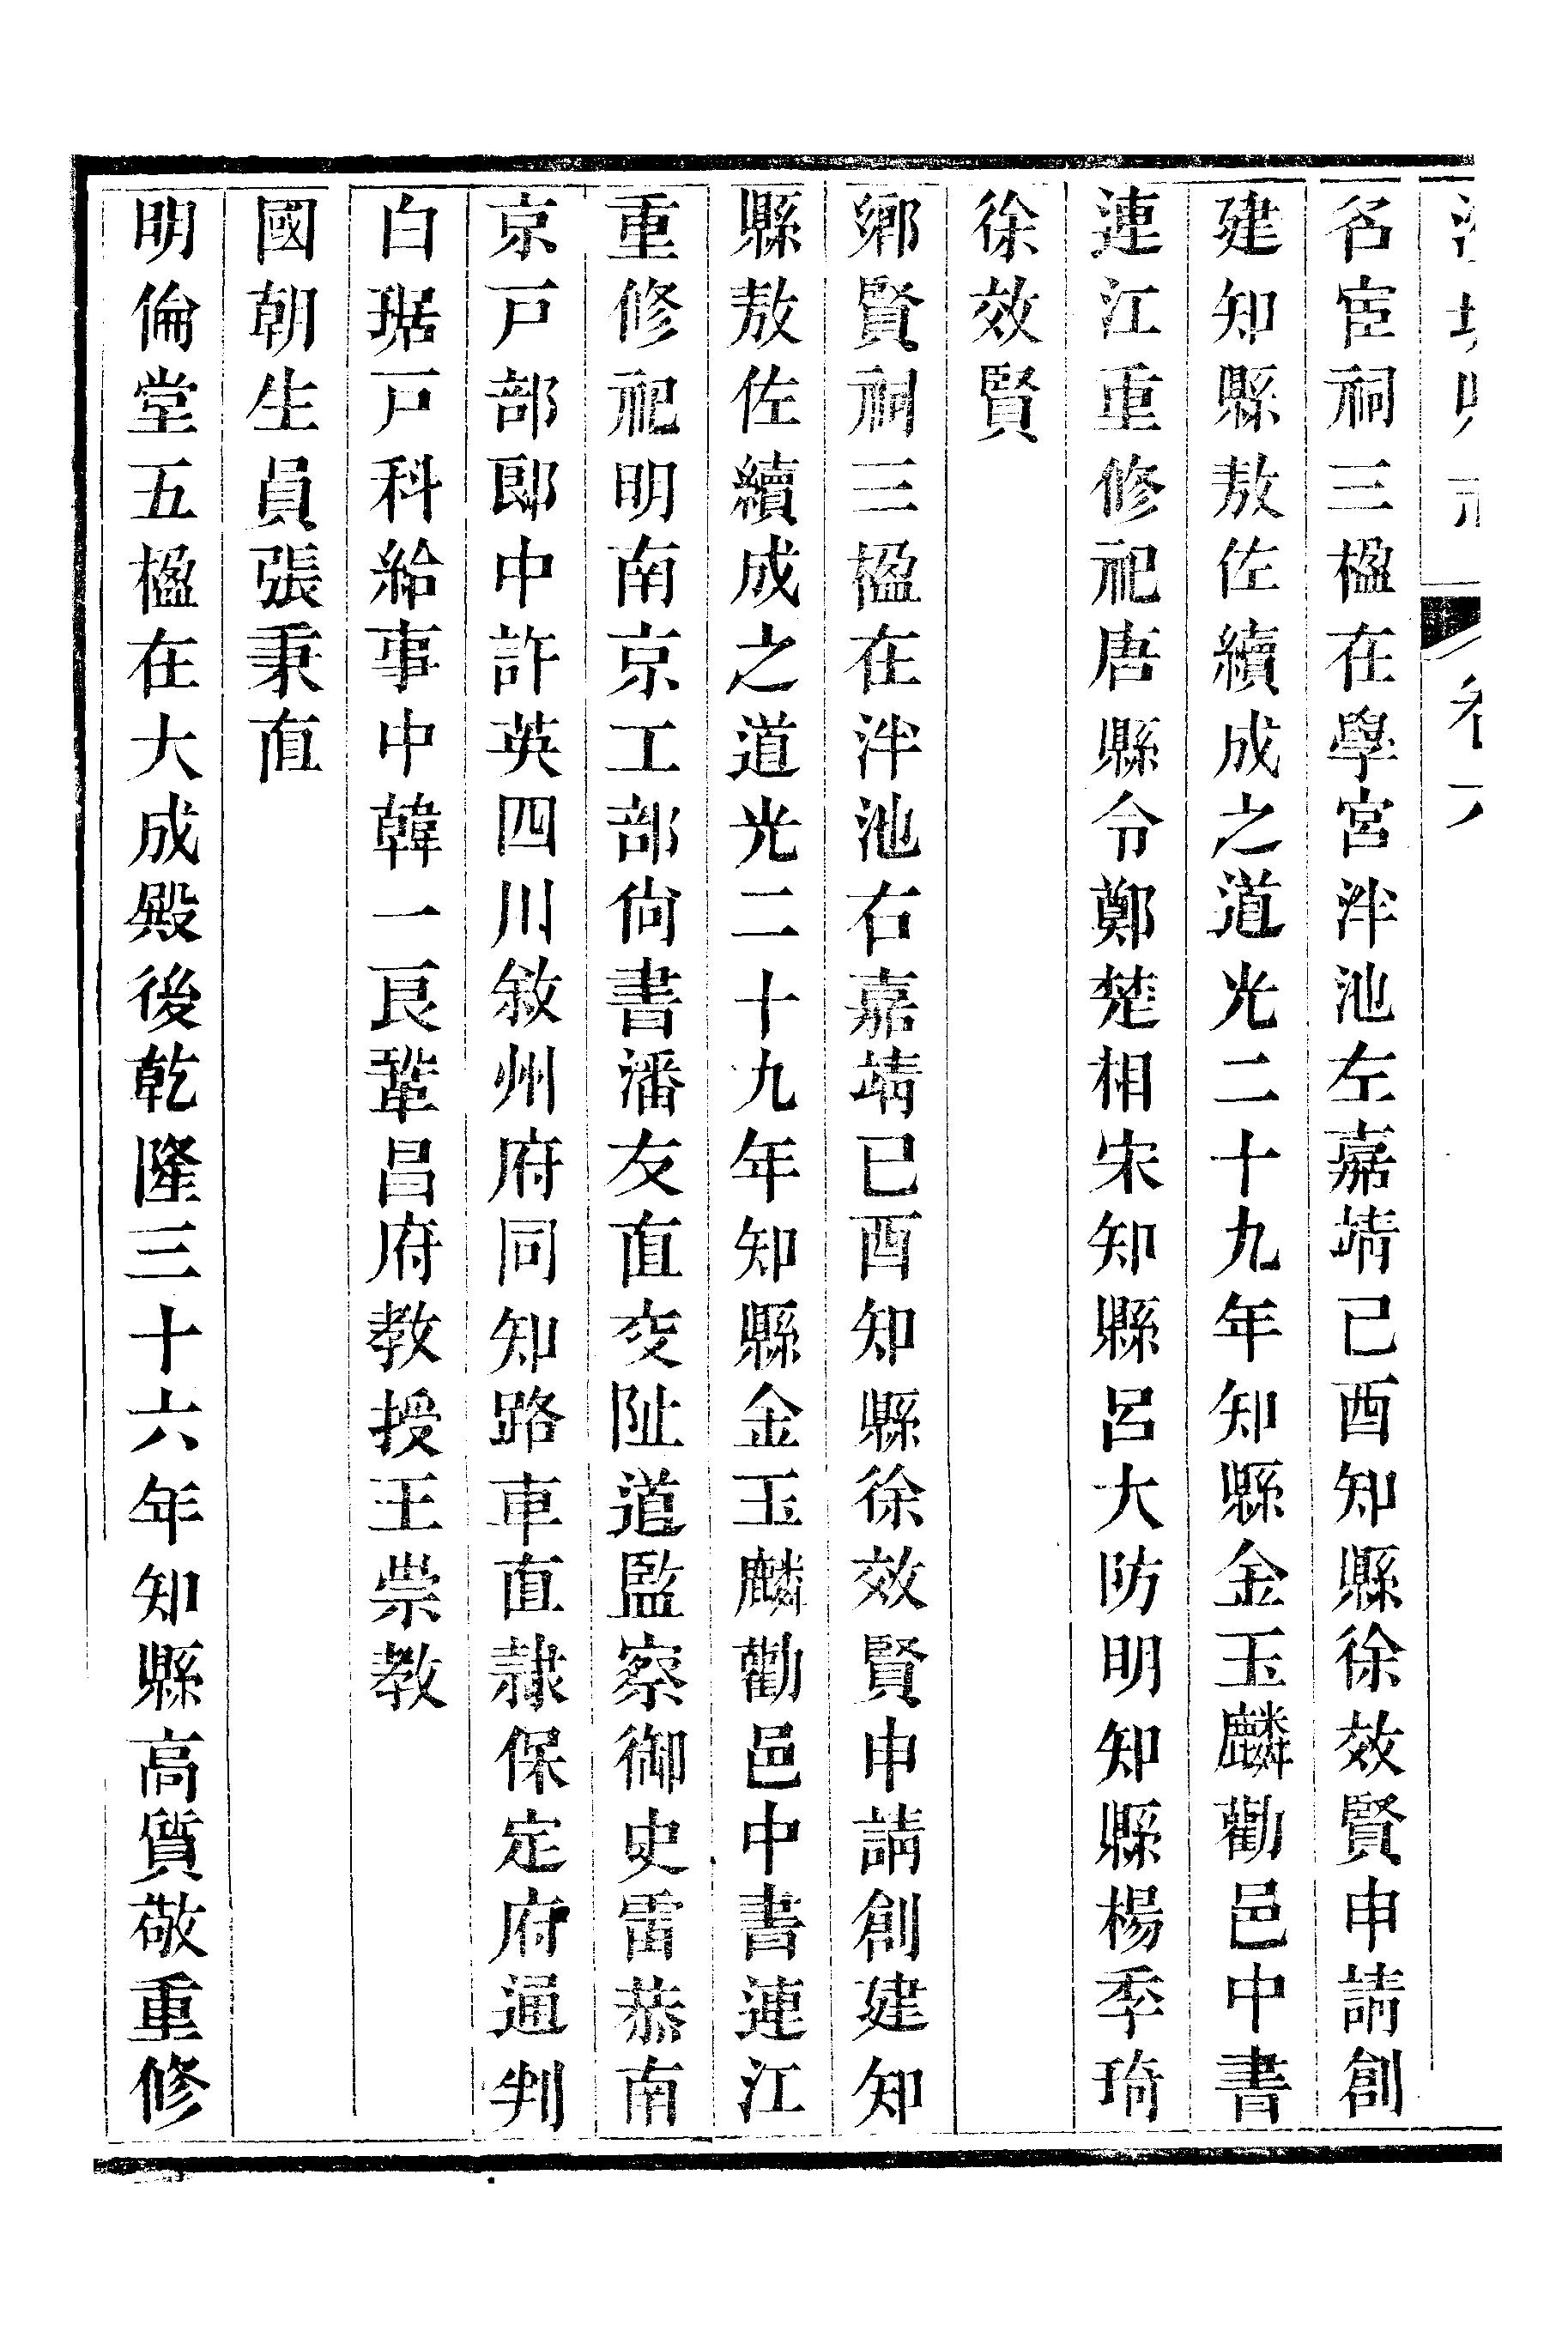 名宦祠三楹在學宮泮池左嘉靖己酉知縣徐效賢申請創
建知縣敖佐續成之道光二十九年知縣金玉麟勸邑中書
連江重修祀唐縣令鄭楚相宋知縣呂大防明知縣楊季琦
徐效賢
鄉賢祠三楹在泮池右嘉靖已酉知縣徐效賢申請創建知
縣敖佐續成之道光二十九年知縣金玉麟勸邑中書連江
重修祀明南京工部尚書潘友直交阯道監察御史雷恭南
京戸部郎中許英四川敘州府同知路車直隸保定府通判
白琚戸科給事中韓一良鞏昌府教授王崇教
國朝生員張秉直
明倫堂五楹在大成殿後乾隆三十六年知縣高質敬重修